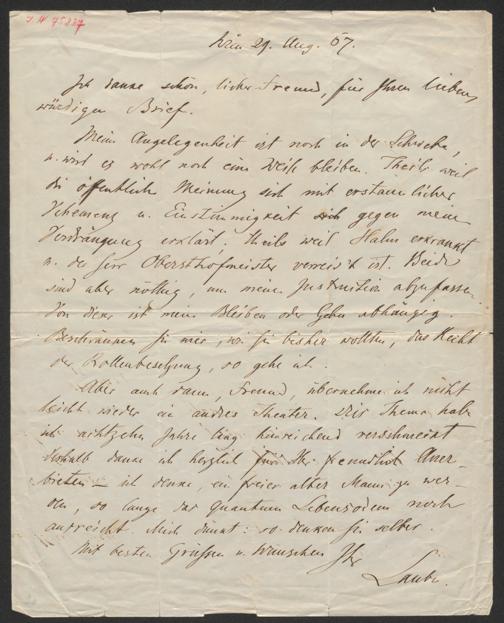 J N 75827
Wien 29. Aug. 67.
Ich danke schön, lieber Freund, für Ihren liebens
würdigen Brief.
Meine Angelegenheit ist noch in der Schwebe,
u. wird es wohl noch eine Weile bleiben. Theils weil
die öffentliche Meinung sich mit erstaunlicher
Vehemenz u. Einstimmigkeit gegen meine
Verdrängung erklärt, theils weil Halm erkrankt
u. der Herr Obersthofmeister verreist ist. Beide
sind aber nöthig, um meine Instruktion abzufassen.
Von dieser ist mein Bleiben oder Gehn abhängig.
Beschränken sie mir, wie sie bisher wollten, das Recht
der Rollenbesetzung, so gehe ich.
Aber auch dann, Freund, übernehme ich nicht
leicht wieder ein andres Theater. Dies Thema habe
ich achtzehn Jahre lang hinreichend
deshalb danke ich herzlich für Ihr freundlich Aner-
bieten – ich denke, ein freier alter Mann zu wer-
den, so lange das quantum Lebensodem noch
ausreicht. Mich dünkt: so denken Sie selber.
Mit besten Grüßen u. Wünschen Ihr
Laube.